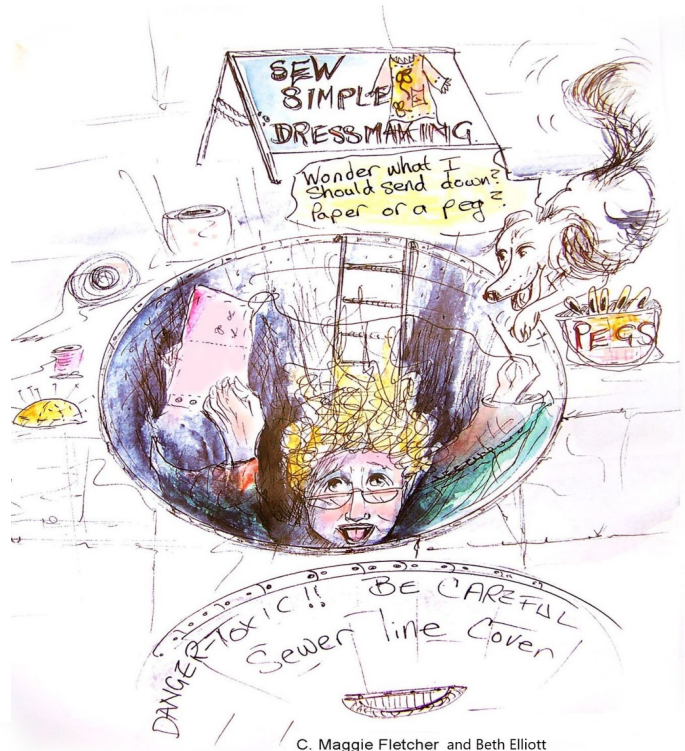 SEW
SIMPLE
DRESSMAKING.
Wonder what I
should send down?
Paper or a peg?
PEGS
DANGER-TOXIC!! BE CAREFUL
Sewer line Cover
C. Maggie Fletcher and Beth Elliott